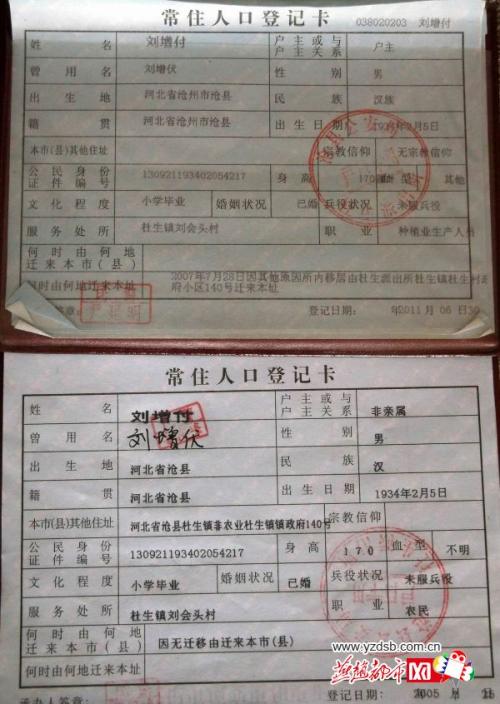 常住人口登记卡
038020203 刘增付
姓 名 刘增付 户主或与户主关系 户主
曾用名 刘增伏 性别 男
出生地 河北省沧州市沧县 民族 汉族
籍贯 河北省沧州市沧县 出生日期 1934年2月5日
本市(县)其他住址 宗教信仰 无宗教信仰
公民身份证件编号 130921193402054217 身高 170 血型 其他
文化程度 小学毕业 婚姻状况 已婚 兵役状况 未服兵役
服务处所 杜生镇刘会头村 职业 种植业生产人员
何时由何地迁来本市(县)
何时由何地迁来本址 2007年7月28日因其他原因所内移居由杜生派出所杜生镇杜生村政府小区140号迁来本址
登记日期: 2011年06月30
常住人口登记卡
姓 名 刘增付 户主或与户主关系 非亲属
曾用名 刘增伏 性别 男
出生地 河北省沧县 民族 汉
籍贯 河北省沧县 出生日期 1934年2月5日
本市(县)其他住址 河北省沧县杜生镇非农业杜生镇镇政府140号 宗教信仰
公民身份证件编号 130921193402054217 身高 170 血型 不明
文化程度 小学毕业 婚姻状况 已婚 兵役状况 未服兵役
服务处所 杜生镇刘会头村 职业 农民
何时由何地迁来本市(县) 因无迁移由迁来本市(县)
何时由何地迁来本址
www.yzdsb.com.cn
燕赵都市网
承办人签章: 登记日期: 2005年